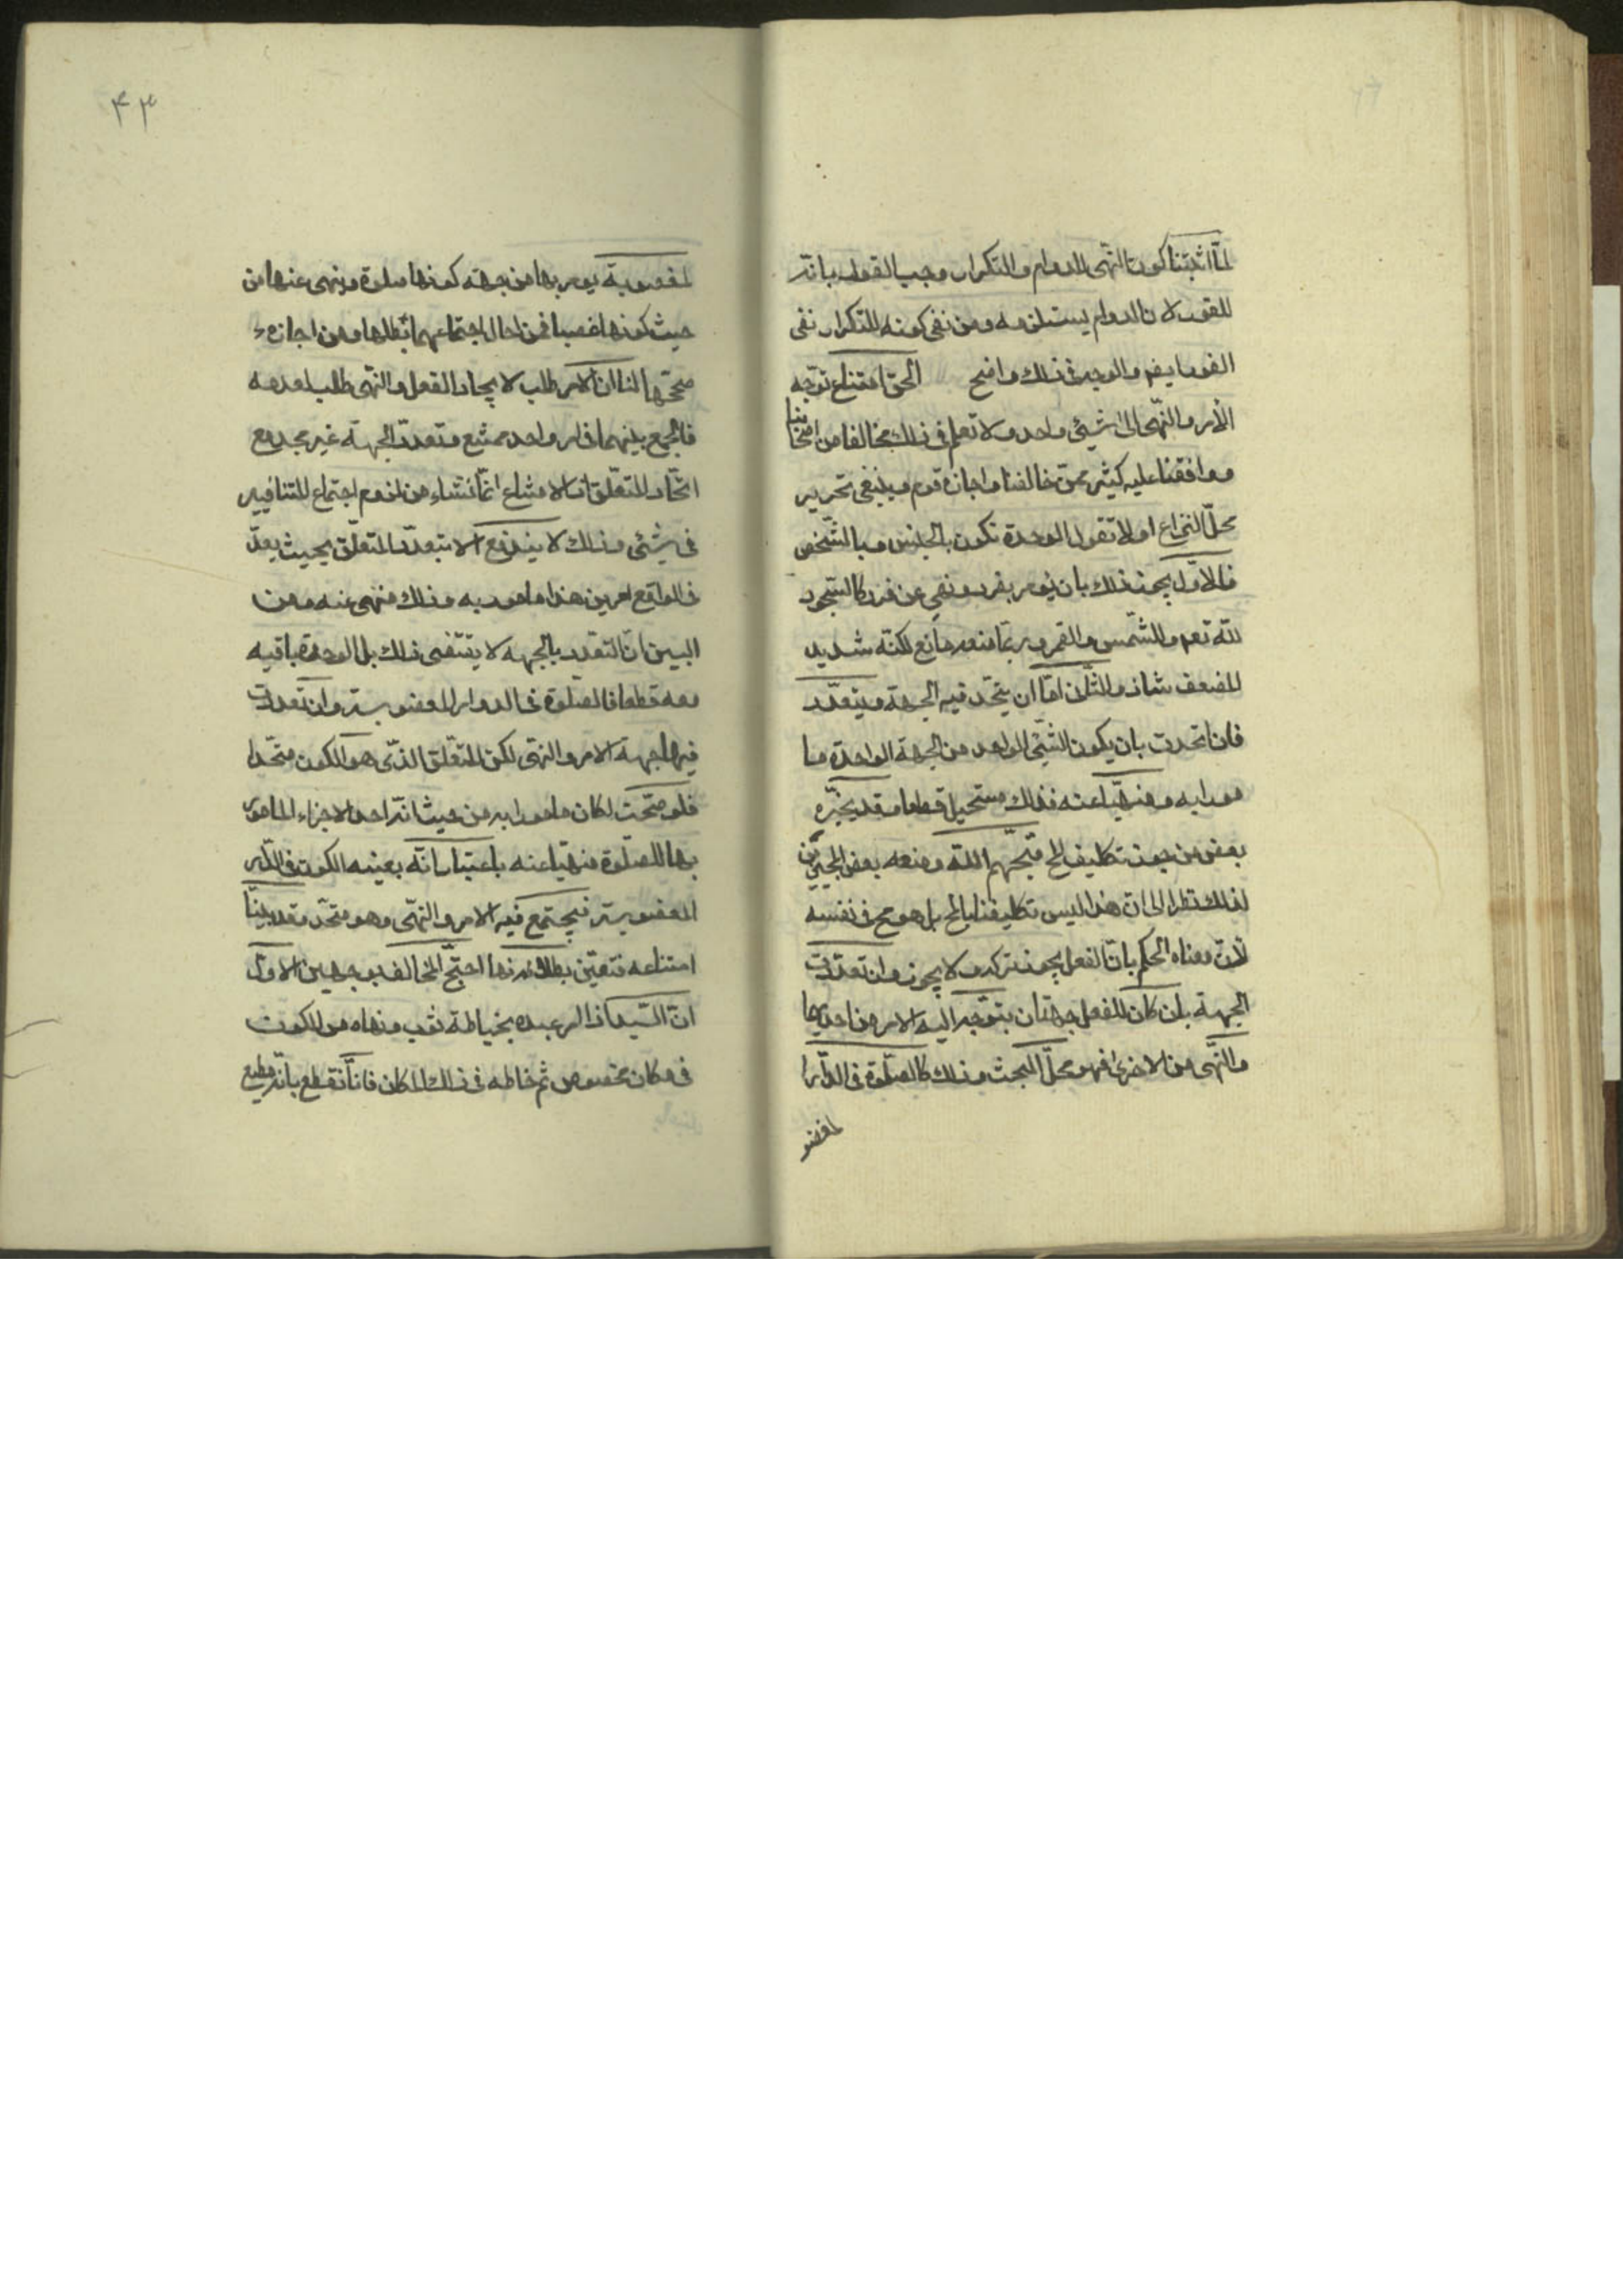 لمّا اثبتنا كون النّهى للدوام والتكرار وجب القول بانّه
للفور لان الدوام يستلزمه ومن نفى كونه للتكرار نفى
الفور ايضا والوجه فى ذلك واضح الحقّ امتناع توجّه
الأمر والنّهى الى شيئى واحد ولا نعلم فى ذلك مخالفا من اصحابنا
ووافقنا عليه كثير ممّن خالفنا واجازه قوم وينبغى تحرير
محلّ النزاع اولا نقول الوحدة تكون بالجنس وبالشّخص
فالاوّل يجوز ذلك بان يؤمر بفرد ونهى عن فرد كالسّجود
للّه تعم وللشّمس والقمر وربّما منعه مانع لكنّه شديد
الضعف شاذ والثّانى امّا ان يتّحد فيه الجهة ويتعدّد
فان اتحدت بان يكون الشّيئى الواحد من الجهة الواحدة ما
مورا به ومنهيّا عنه فذلك مستحيل قطعا وقد يجيزه
بعض من جوز تكليف المح قبّحهم اللّه ومنعه بعض المجيزين
لذلك نظرا الى انّ هذا ليس تكليفنا بالمح بل هو مح فى نفسه
لانّ معناه الحكم بانّ الفعل يجوز تركه ولا يجوز وان تعدّدت
الجهة بان كان للفعل جهتان يتوّجه اليه الامر من احديهما
والنّهى من الاخرى فهو محلّ البحث وذلك كالصّلوة فى الدّار ا
لمغصو
۴۳
لمغصوبة يؤمر بها من جهته كونها صلوة وينهى عنها من
حيث كونها غصبا فمن احال اجتماعهما ابطلها ومن اجازه
صحّحها لنا ان الامر طلب لايجاد الفعل والنّهى طلب لعدمه
فالجمع بينهما فى امر واحد ممتنع وتعدّد الجهة غير مجد مع
اتّحاد المتعلّق اذ الامتناع انّما نشاء من لزوم اجتماع المتنافيين
فى شيئى وذلك لا يندفع الا بتعدّد المتعلّق بحيث يعدّ
فى الواقع امرين هذا مامور به وذلك منهى عنه ومن
البين انّ التعدّد بالجهة لا يقتضى ذلك بل الوحدة باقيه
معه قطعا فالصلوة فى الدوار المغضوبة وان تعددت
فيها جهة الامر والنهى لكن المتعّلق الذّى هو الكون متحّد
فلو صحّت لكان مامورا به من حيث انّه احد الاجزاء المامور
بها للصلوة منهيّا عنه باعتبار انّه بعينه الكون فى الدّار
المغضوبة فيجتمع فيه الامر والنهّى وهو متحّد وقد بيّنا
امتناعه فتعيّن بطلانها احتجّ المخالف بوجهين الاوّل
انّ السّيد اذا امر عبده بخياطة ثوب ونهاه من الكون
فى مكان مخصوص ثم خاطه فى ذلك المكان فانّا نقطع بانّه مطيع